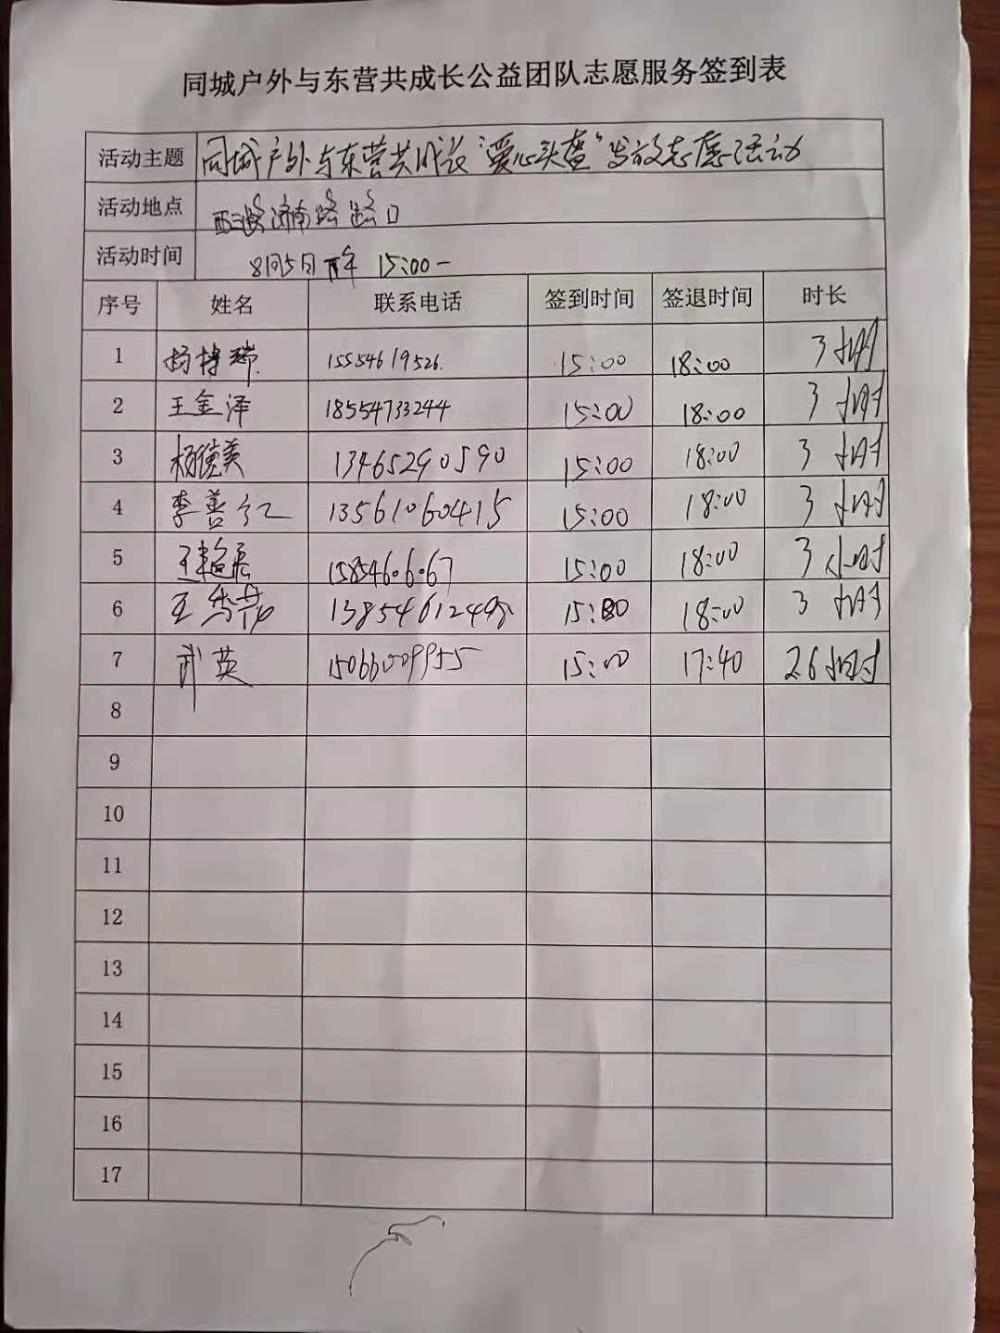 同城户外与东营共成长公益团队志愿服务签到表
活动主题 同城户外与东营共成长"爱心头盔"发放志愿活动
活动地点 西三路济南路路口
活动时间 8月5日下午 15:00-
序号 姓名 联系电话 签到时间 签退时间 时长
1 杨博瑞 15554619526. 15:00 18:00 3小时
2 王金泽 18554733244 15:00 18:00 3小时
3 杨德美 13465290590 15:00 18:00 3小时
4 李善红 13561060415 15:00 18:00 3小时
5 15:00 18:00 3小时
6 王秀花 15:00 18:00 3小时
7 武英 15066009955 15:00 17:40 2.6小时
8
9
10
11
12
13
14
15
16
17